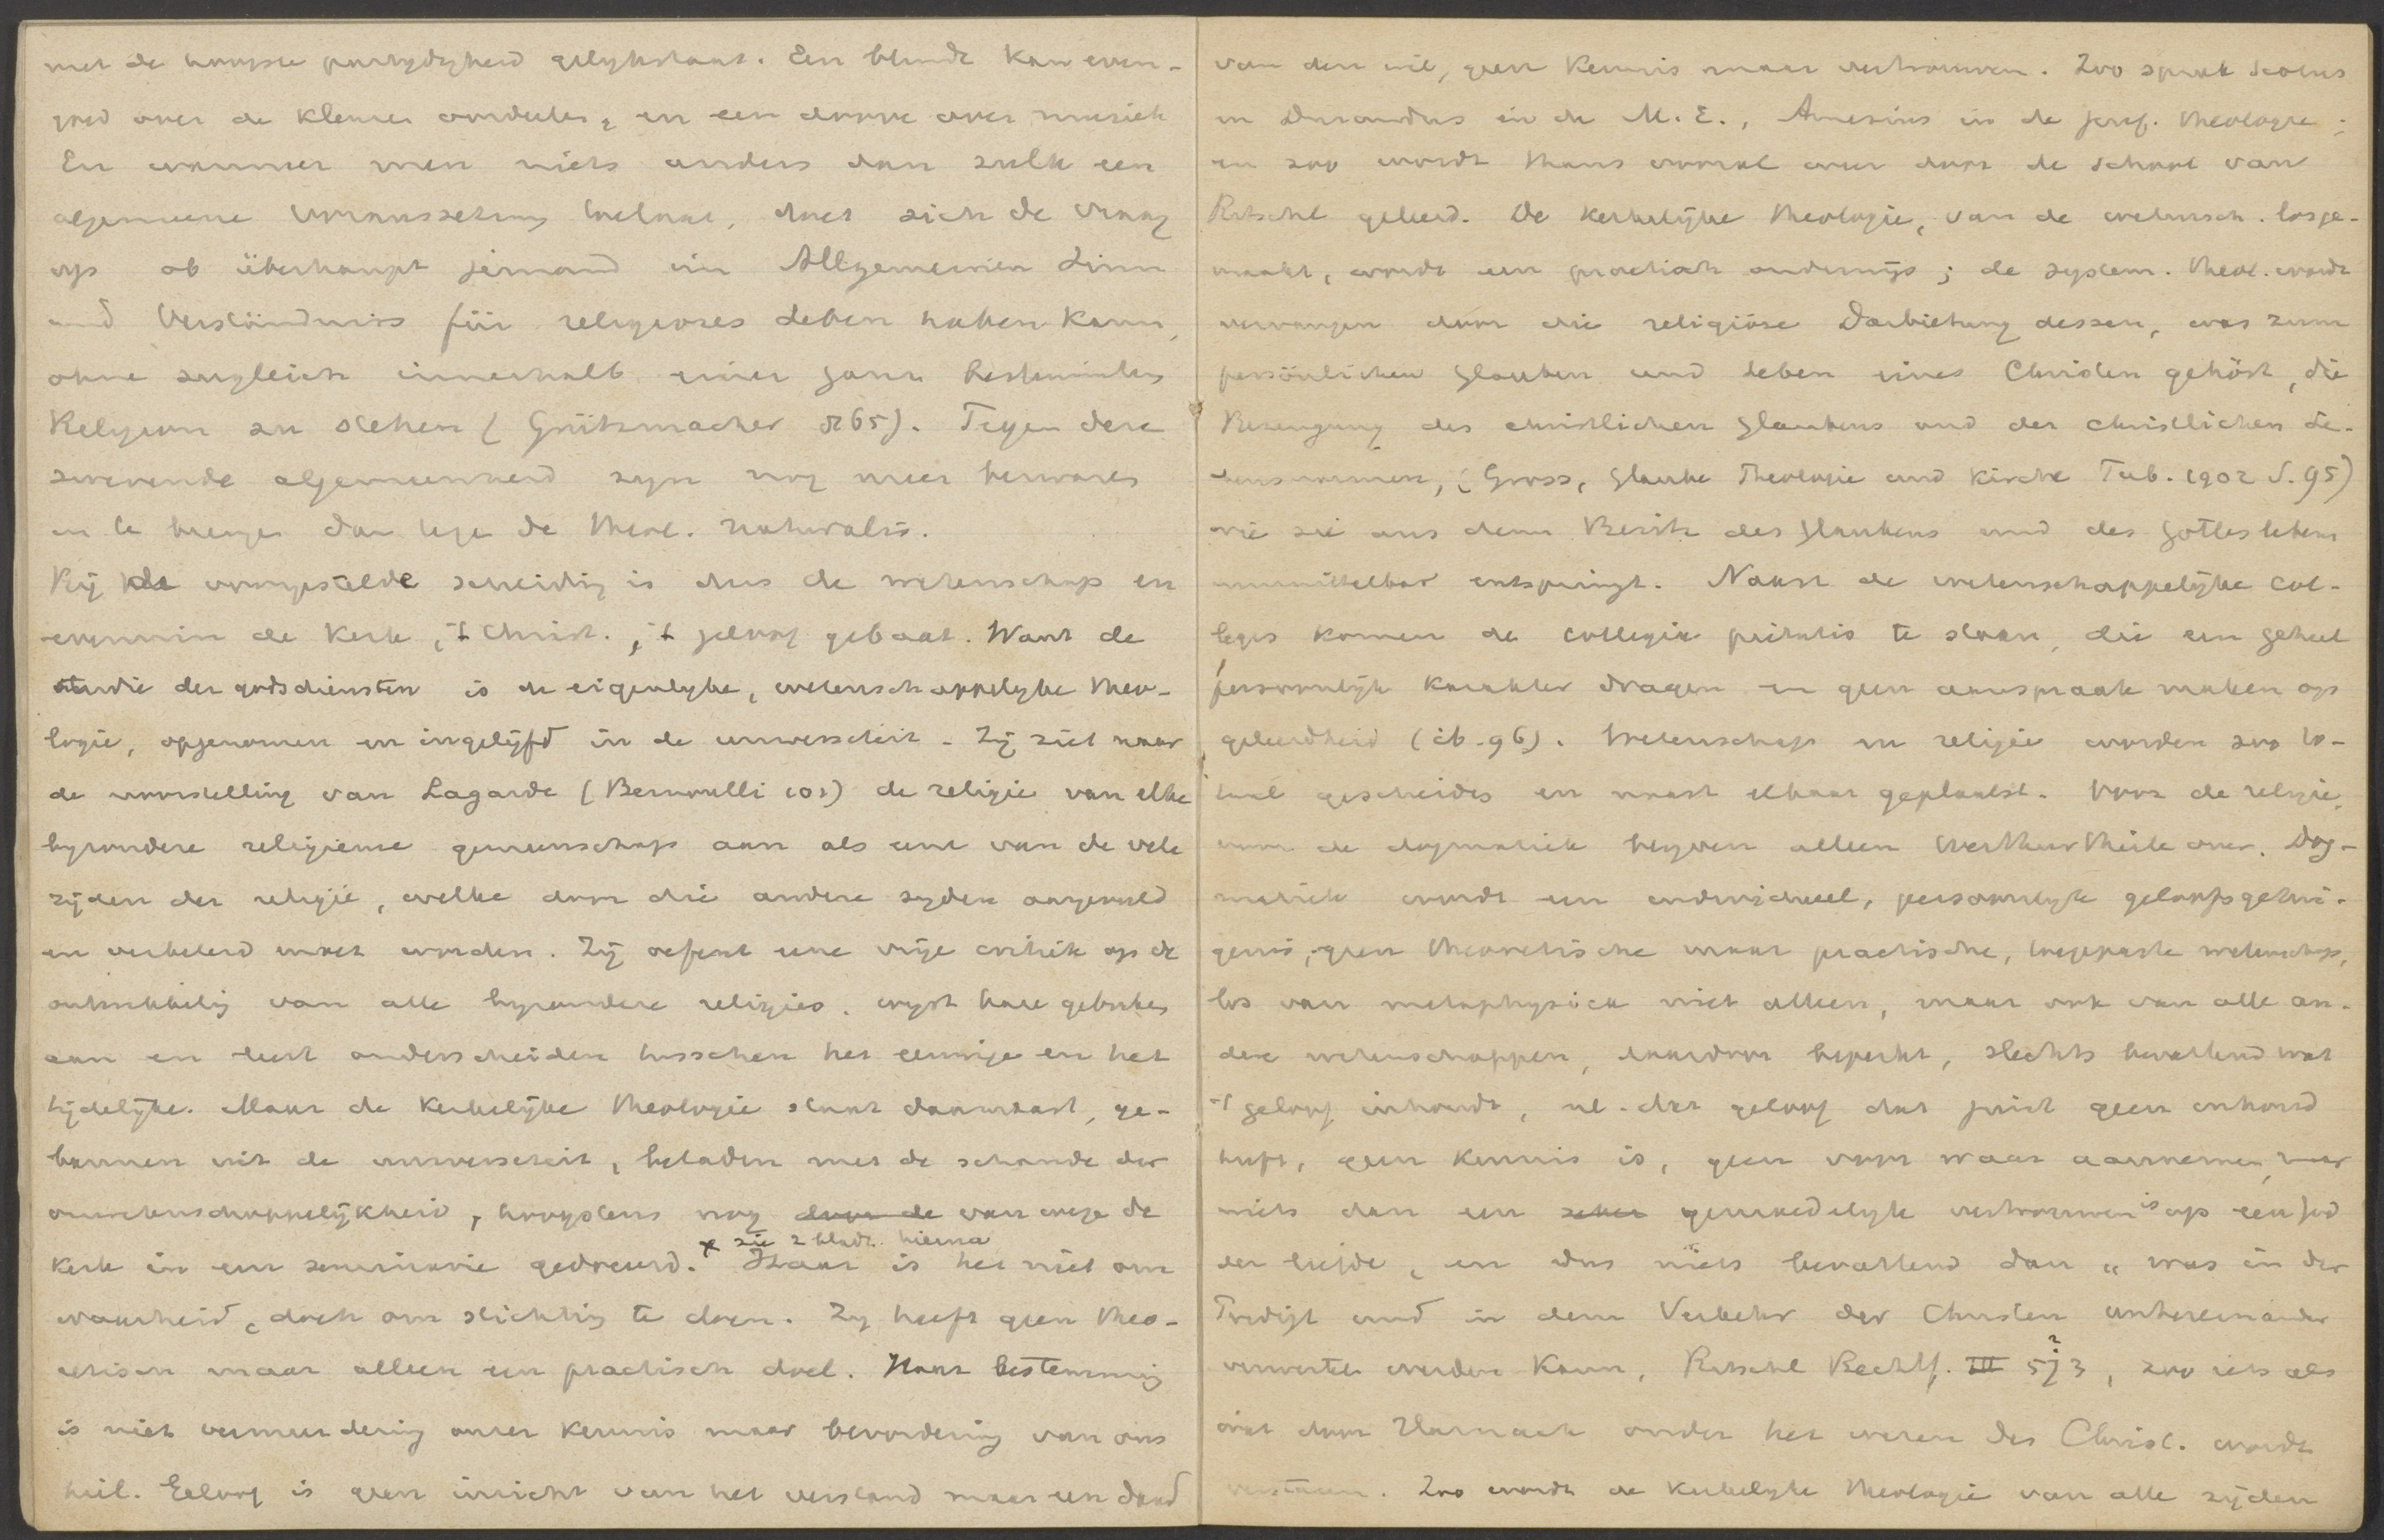 met de hoogste partydigheid gelykstaat. Een blinde kan even-
goed over de kleuren oordeelen, en een doove over muziek
En wanneer men niets anders dan zulk een
algemeene Voraussetzung toelaat, doet zich de vraag
op ob überhaupt jemand im Allgemeinen Sinn
und Verständniss für religioses Leben haben kann,
ohne zugleich innerhalb einer ganz bestimmten
Religion zu stehen (Grützmacher S 65). Tegen deze
zwevende algemeenheid zyn nog meer bezwaren
in te brengen dan tege de theol. naturalis.
Bij de voorgestelde scheiding is dus de wetenschap en
evenmin de kerk, 't Christ., 't geloof gebaat. Want de
studie der godsdiensten is de eigenlyke, wetenschappelyke theo-
logie, opgenomen en ingelijfd in de universiteit. Zij ziet naar
de voorstelling van Lagarde (Bernoulli 101) de religie van elke
byzondere religieuse gemeenschap aan als eene van de vele
zijden der religie, welke door die andere zyden aangevuld
en verbeterd moet worden. Zij oefent eene vrije critiek op de
onhankelig van alle byzondere religies, wyst hare gebreken
aan en leert onderscheiden tusschen het eeuwige en het
tijdelijke. Maar de kerkelijke theologie staat daarnaast, ge-
bannen uit de universiteit, beladen met de schande der
onwetenschappelijkheid, hoogstens nog door de van wege de
* zie 2 bladz. hierna
kerk in een seminarie gedoceerd. * Haar is het niet om
waarheid, doch om stichting te doen. Zy heeft geen theo-
retisch maar alleen een practisch doel. Haar bestemming
is niet vermeerdering onzer kennis maar bevordering van ons
heil. Geloof is geen inzicht van het verstand maar een daad
van den wil, geen kennis maar vertrouwen. Zoo sprak Scotus
en Durandus in de M. E., Amesius in de geref. theologie;
en zoo wordt thans vooral weer door de school van
Ritschl geleerd. De kerkelijke theologie, van de wetensch. losge-
maakt, wordt een practisch onderwijs; de system. theol. wordt
vervangen door die religiöse Darbietung dessen, was zum
persönlichen Glauben und Leben eines Christen gehört, die
Bezeugung des christlichen Glaubens und der christlichen Le-
bensnormen, (Gross, Glaube Theologie und Kirche Tub. 1902 S. 95)
wie sie aus dem Besitz des Glaubens und des Gotteslebens
unmittelbar entspringt. Naast de wetenschappelijke col-
leges komen de collegia pietatis te staan, die een geheel
persoonlijk karakter dragen en geen aanspraak maken op
geleerdheid (ib. 96). Wetenschap en religie worden zoo to-
taal gescheiden en naast elkaar geplaatst. Voor de religie,
voor de dogmatiek blyven alleen Werthurtheile over. Dog-
matiek wordt een individueel, persoonlyk geloofsgetui-
genis, geen theoretische maar practische, toegepaste wetenschap,
los van metaphysica niet alleen, maar ook van alle an-
dere wetenschappen, daardoor beperkt, slechts bevattend wat
't geloof inhoudt, nl. dat geloof dat juist geen inhoud
heeft, geen kennis is, geen voor waar aannemen, maar
niets dan een zeker gemoedelyk vertrouwen is op een God
der liefde, en dus niets bevattend dan "was in der
Predigt und in dem Verkehr der Christen untereinander
verwertet werden kann, Ritschl Rechtf. III 5?3, zoo iets als
wat door Harnack onder het wezen des Christ. wordt
verstaan. Zoo wordt de kerkelyke theologie van alle zijden